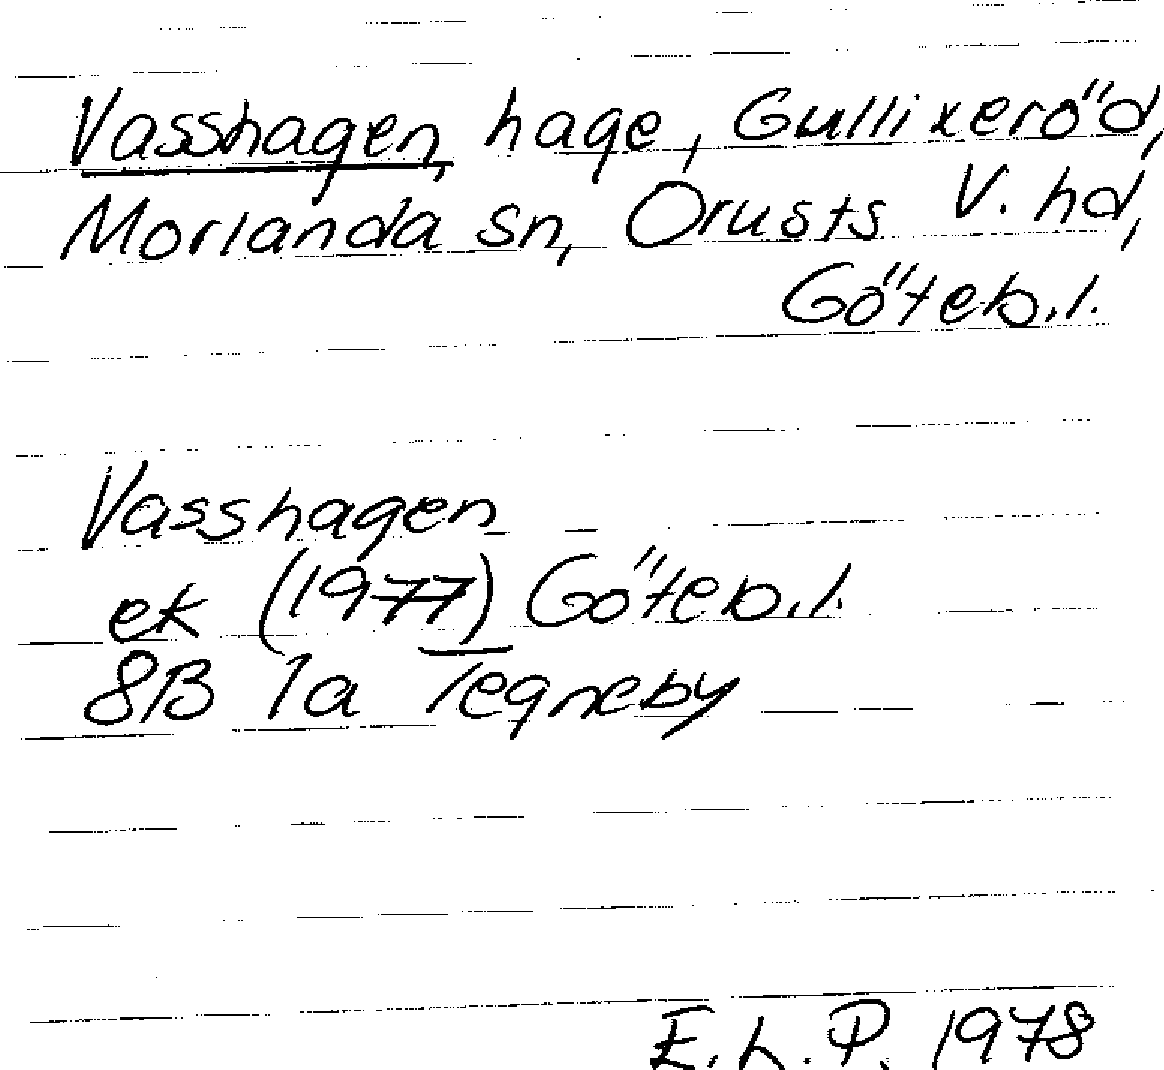 Vasshagen, hage, Gullixeröd,
Morlanda sn, Orusts V. hd,
Göteb.l.
Vasshagen
ek (1977) Göteb.l.
8B 1a Tegneby
E.L.P. 1978